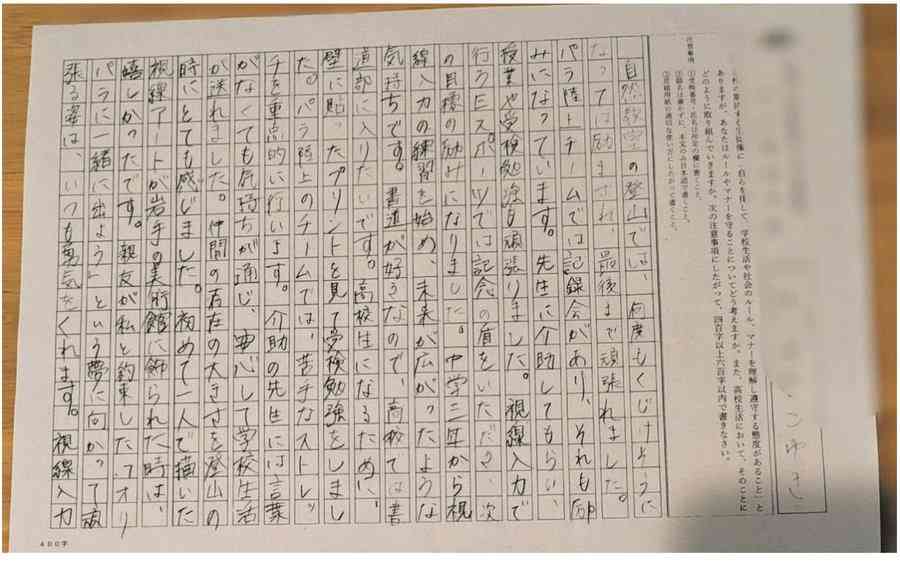 こゆき
生徒像に「自らを律して、学校生活や社会のルール、マナーを理解し遵守する態度があること」と
ありますが、あなたはルールやマナーを守ることについてどう考えますか。また、高校生活において、そのことに
どのように取り組んでいきますか。次の注意事項にしたがって、四百字以上六百字以内で書きなさい。
注意事項
①受検番号・氏名は所定の欄に書くこと。
②題名は書かずに、本文のみ日本語で書くこと。
③原稿用紙の適切な使い方にしたがって書くこと。
自然教室の登山では、何度もくじけそうに
なっては励まされ、最後まで頑張れました。
パラ陸上チームでは記録会があり、それも励
みになっています。先生に介助してもらい、
授業や受検勉強も頑張りました。視線入力で
行うeスポーツでは記念の盾をいただき、次
の目標の励みになりました。中学三年から視
線入力の練習を始め、未来が広がったような
気持ちです。書道が好きなので、高校では書
道部に入りたいです。高校生になるために、
壁に貼ったプリントを見て受検勉強をしまし
た。パラ陸上のチームでは、苦手なストレッ
チを重点的に行います。介助の先生には言葉
がなくても気持ちが通じ、安心して学校生活
が送れました。仲間の存在の大きさを登山の
時にとても感じました。初めて一人で描いた
視線アートが岩手の美術館に飾られた時は、
嬉しかったです。親友が私と約束した「オリ
パラに一緒に出よう」という夢に向かって頑
張る姿は、いつも勇気をくれます。視線入力
400字